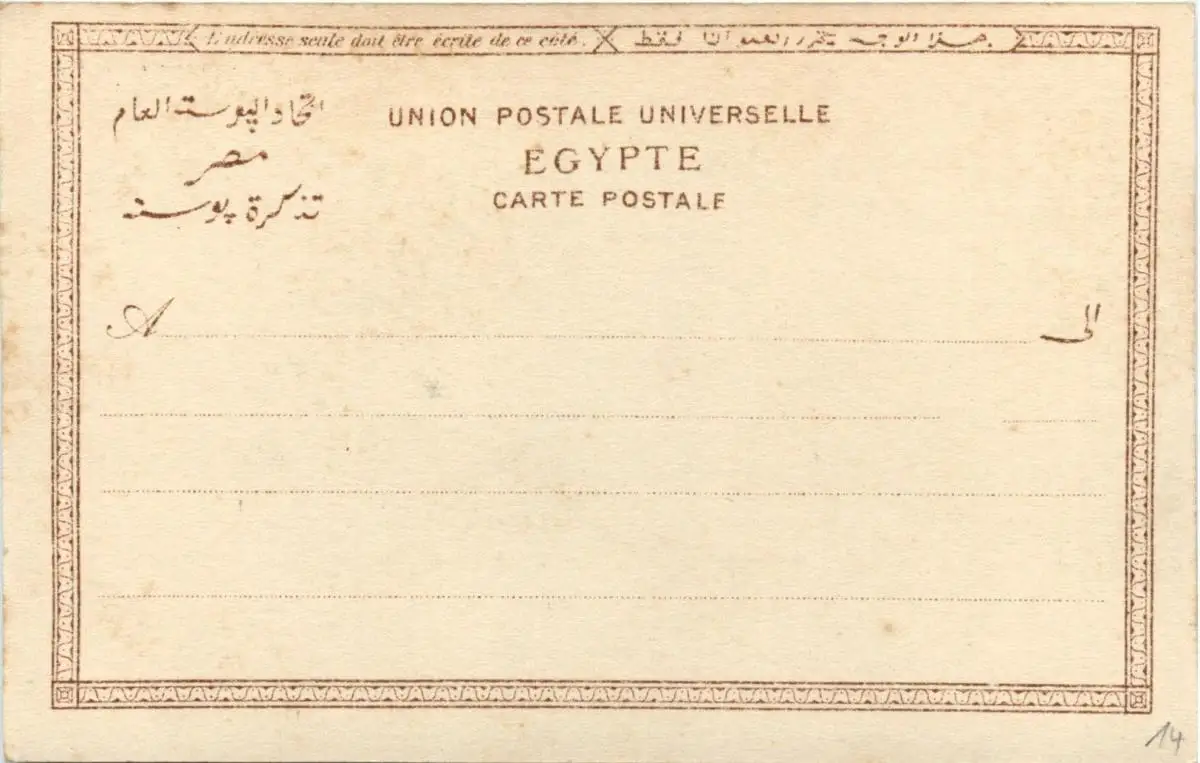 L'adresse seule doit être écrite de ce côté.
هذا الوجه يحرر العنوان فقط
اتحاد البوسته العام
UNION POSTALE UNIVERSELLE
مصر
EGYPTE
تذكرة پوسته
CARTE POSTALE
A
الى
14